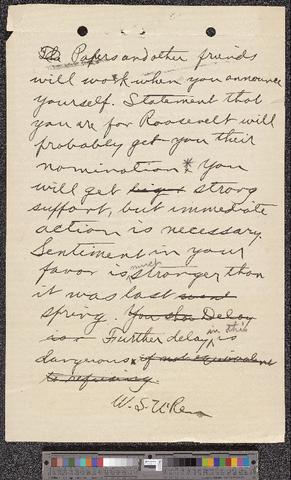 The Papers and other friends
will work when you announce
yourself. Statement that
you are for Roosevelt will
probably get you their
nomination * You
will get strong
support, but immediate
action is necessary.
Sentiment in your
favor is much stronger than
it was last
spring. You Delay
is Further delay in this is
dangerous * if not equivalent
to refusing.
W. S. U'Ren